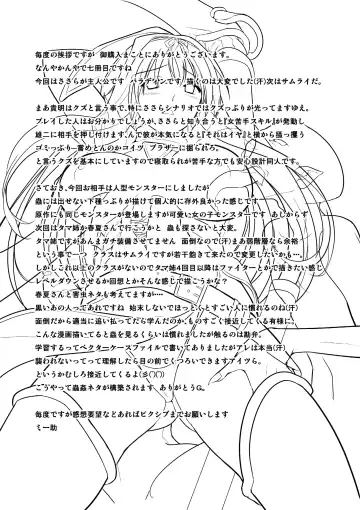 毎度の挨拶ですが 御購入まことにありがとうございます。
なんやかんやで七冊目ですね
今回はささらが主人公です パラディンです 描くのは大変でした(汗)次はサムライだ。
まあ貴明はクズと言う事で、特にささらシナリオではクズっぷりが光ってますゆえ、
プレイした人はお分かりでしょうが、ささらと知り合うと『女苦手スキル』が発動し
雄二に相手を押し付けます、んで彼が本気になると『それはイヤ』横から掻っ攫う
ゴミっぷり…舐めとんのかコイツ ブラザーに掘られろ。
と言うクズを基本にしていますので寝取られが苦手な方でも安心設計同人です。
さておき、今回お相手は人型モンスターにしましたが
蟲には出せない下種っぷりが描けて個人的に存外良かった感じです
原作にも同じモンスターが登場しますが可愛い女の子モンスターです あしからず
次回はタマ姉か春夏さんで行こうかと 蟲も探さないと大変。
タマ姉ですがあんまガチ装備させてません 面倒なので(汗)まあ弱酸層なら余裕
という事で…つ クラスはサムライですが若干飽きて来たので変更したいかも…、
しかしこれ以上のクラスがないのでタマ姉4回目以降はファイターとかで描きたい感じ
レベルダウンさせるか回想とかそんな感じで描こうかな?
春夏さんと害虫ネタも考えてますが…
黒いあの人ってあれですね 始末しないでほっとくとすごい人に慣れるのね(汗)
面倒だから適当に追い払ってたら学んだのか、ものすごく接近している有様に、
こんな漫画描いてると蟲を見るくらいは慣れましたが触るのは勘弁、
学習するってベクターケースファイルで書いてありましたがアレは本当(汗)
襲われないってって理解したら目の前でくつろいできますアイツら。
というかむしろ接近してくるよ(彡(')('))
こうやって蟲姦ネタが構築されます ありがとうG。
毎度ですが感想要望などあればピクシブまでお願いします
ミー助